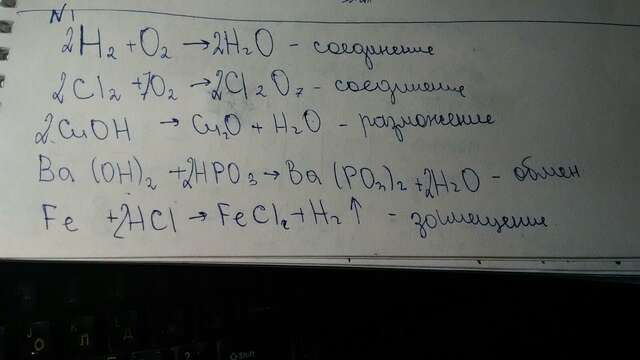 N1
2H₂ + O₂ → 2H₂O - соединение
2Cl₂ + 7O₂ → 2Cl₂O₇ - соединение
2CuOH → Cu₂O + H₂O - разложение
Ba(OH)₂ + 2HPO₃ → Ba(PO₃)₂ + 2H₂O - обмен
Fe + 2HCl → FeCl₂ + H₂↑ - замещение